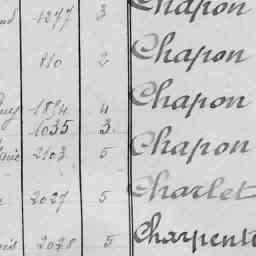 1277 3 Chapon
810 2 Chapon
1894 4 Chapon
1035 3
2103 5 Chapon
2027 5 Charlet
2028 5 Charpent